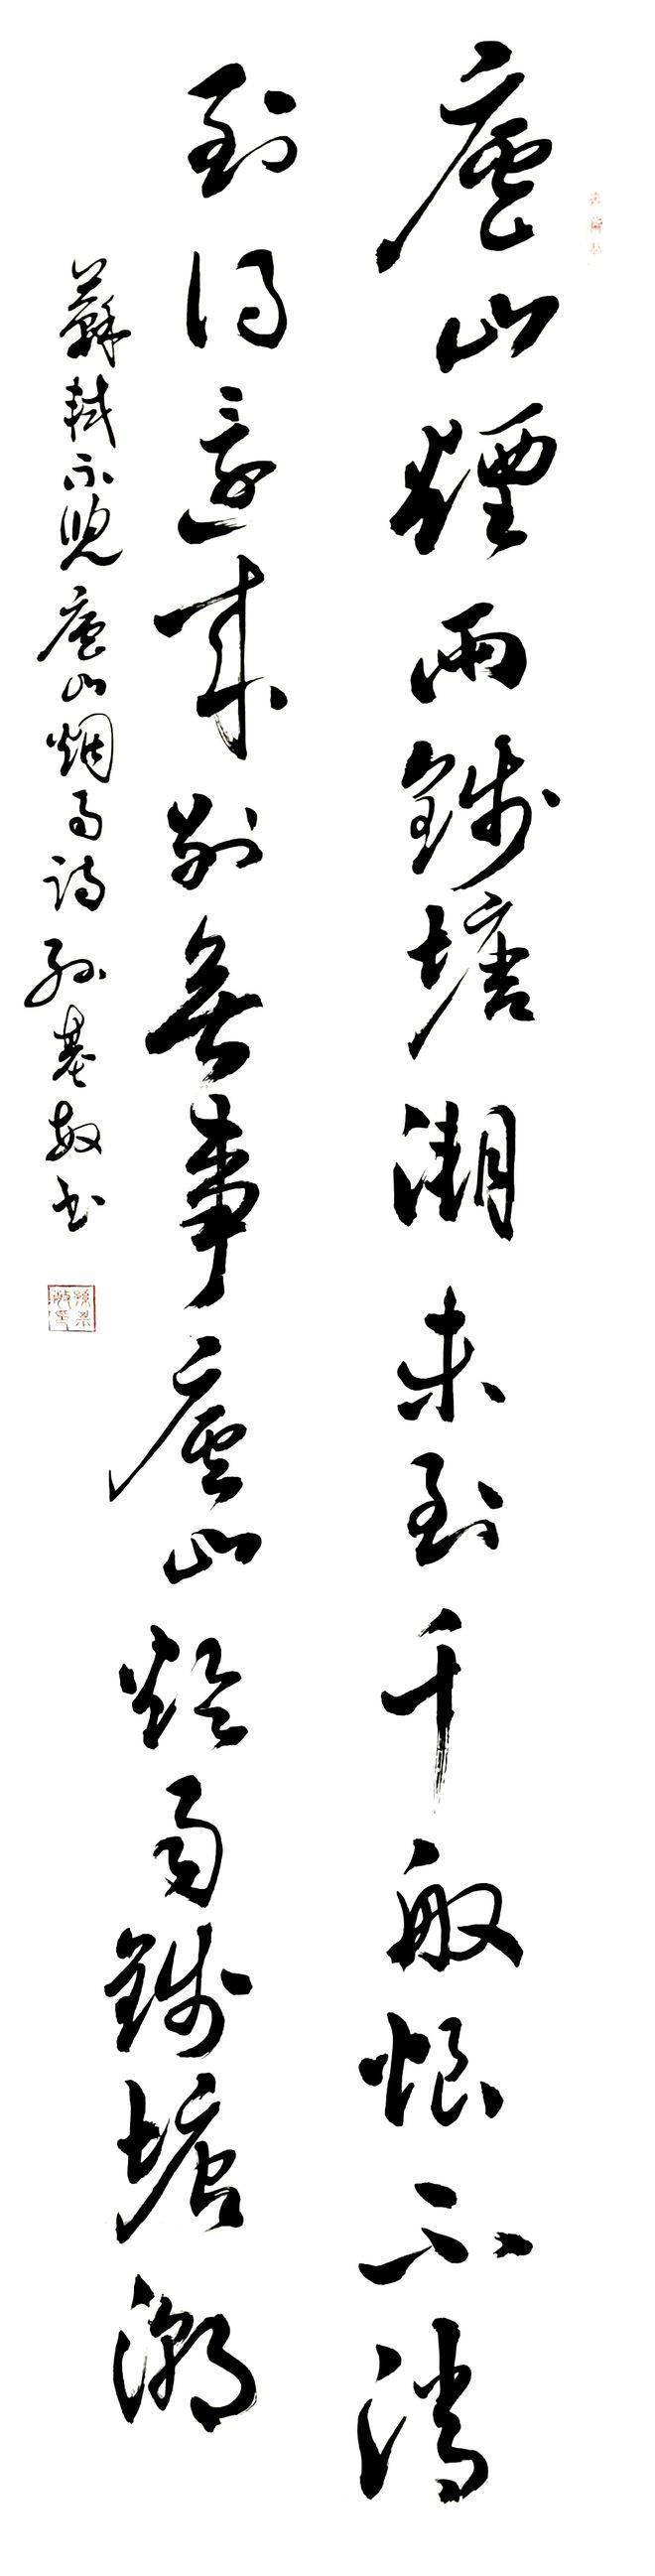 廬山煙雨錢塘潮未到千般恨不消
到得還來別無事廬山煙雨錢塘潮
蘇軾示兒廬山烟雨詩孫基敏书
孫基敏印